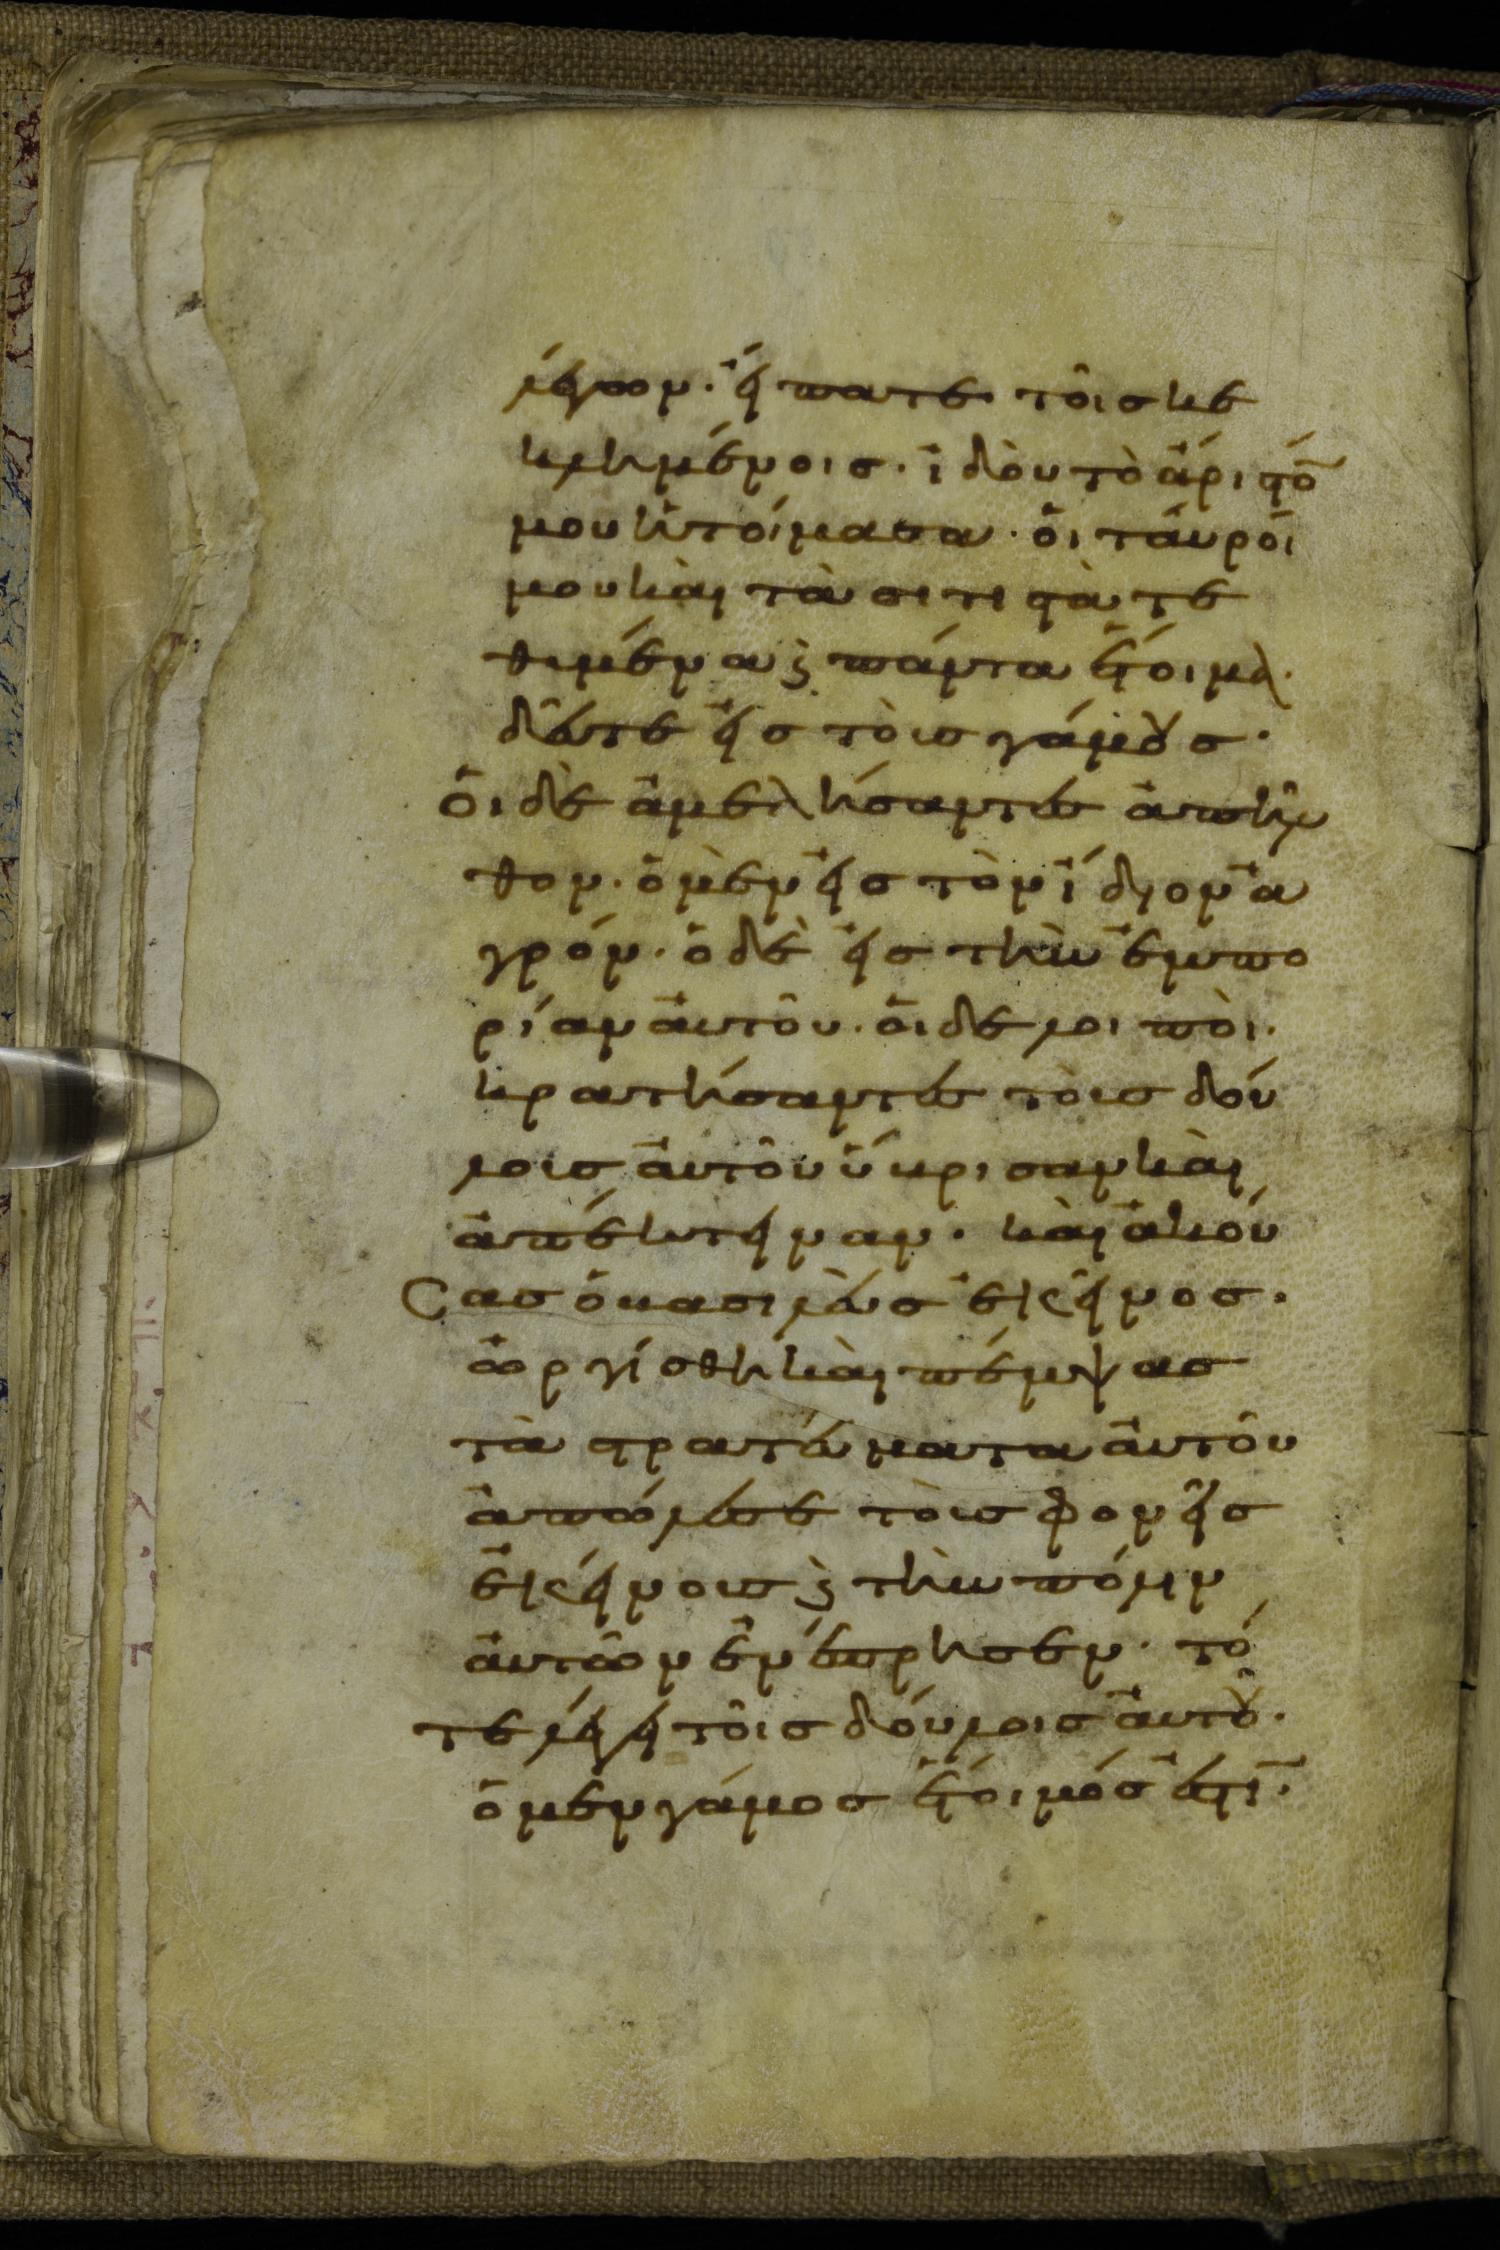 λέγων· εἴπατε τοῖς κε
κλημένοις· ἰδοὺ τὸ ἄριστό
μου ἡτοίμασα· οἱ ταῦροί
μου καὶ τὰ σιτιστὰ τε
θυμένα ϗ πάντα ἕτοιμα·
δεῦτε εἰς τοὺς γάμους·
οἱ δὲ ἀμελήσαντες ἀπῆλ
θον· ὁ μὲν εἰς τὸν ἴδιον ἀ
γρόν· ὁ δὲ εἰς τὴν ἐμπο
ρίαν αὐτοῦ· οἱ δὲ λοιποὶ·
κρατήσαντες τοὺς δού
λους αὐτοῦ ὕβρισαν καὶ
ἀπέκτειναν· καὶ ἀκού
σας ὁ βασιλεὺς ἐκεῖνος·
ὠργίσθη καὶ πέμψας
τὰ στρατεύματα αὐτοῦ
ἀπώλεσε τοὺς φονεῖς
ἐκείνους ϗ τὴν πόλιν
αὐτῶν ἐνέπρησεν· τό
τε λέγει τοῖς δούλοις αὐτοῦ·
ὁ μὲν γάμος ἕτοιμός ἐστι·